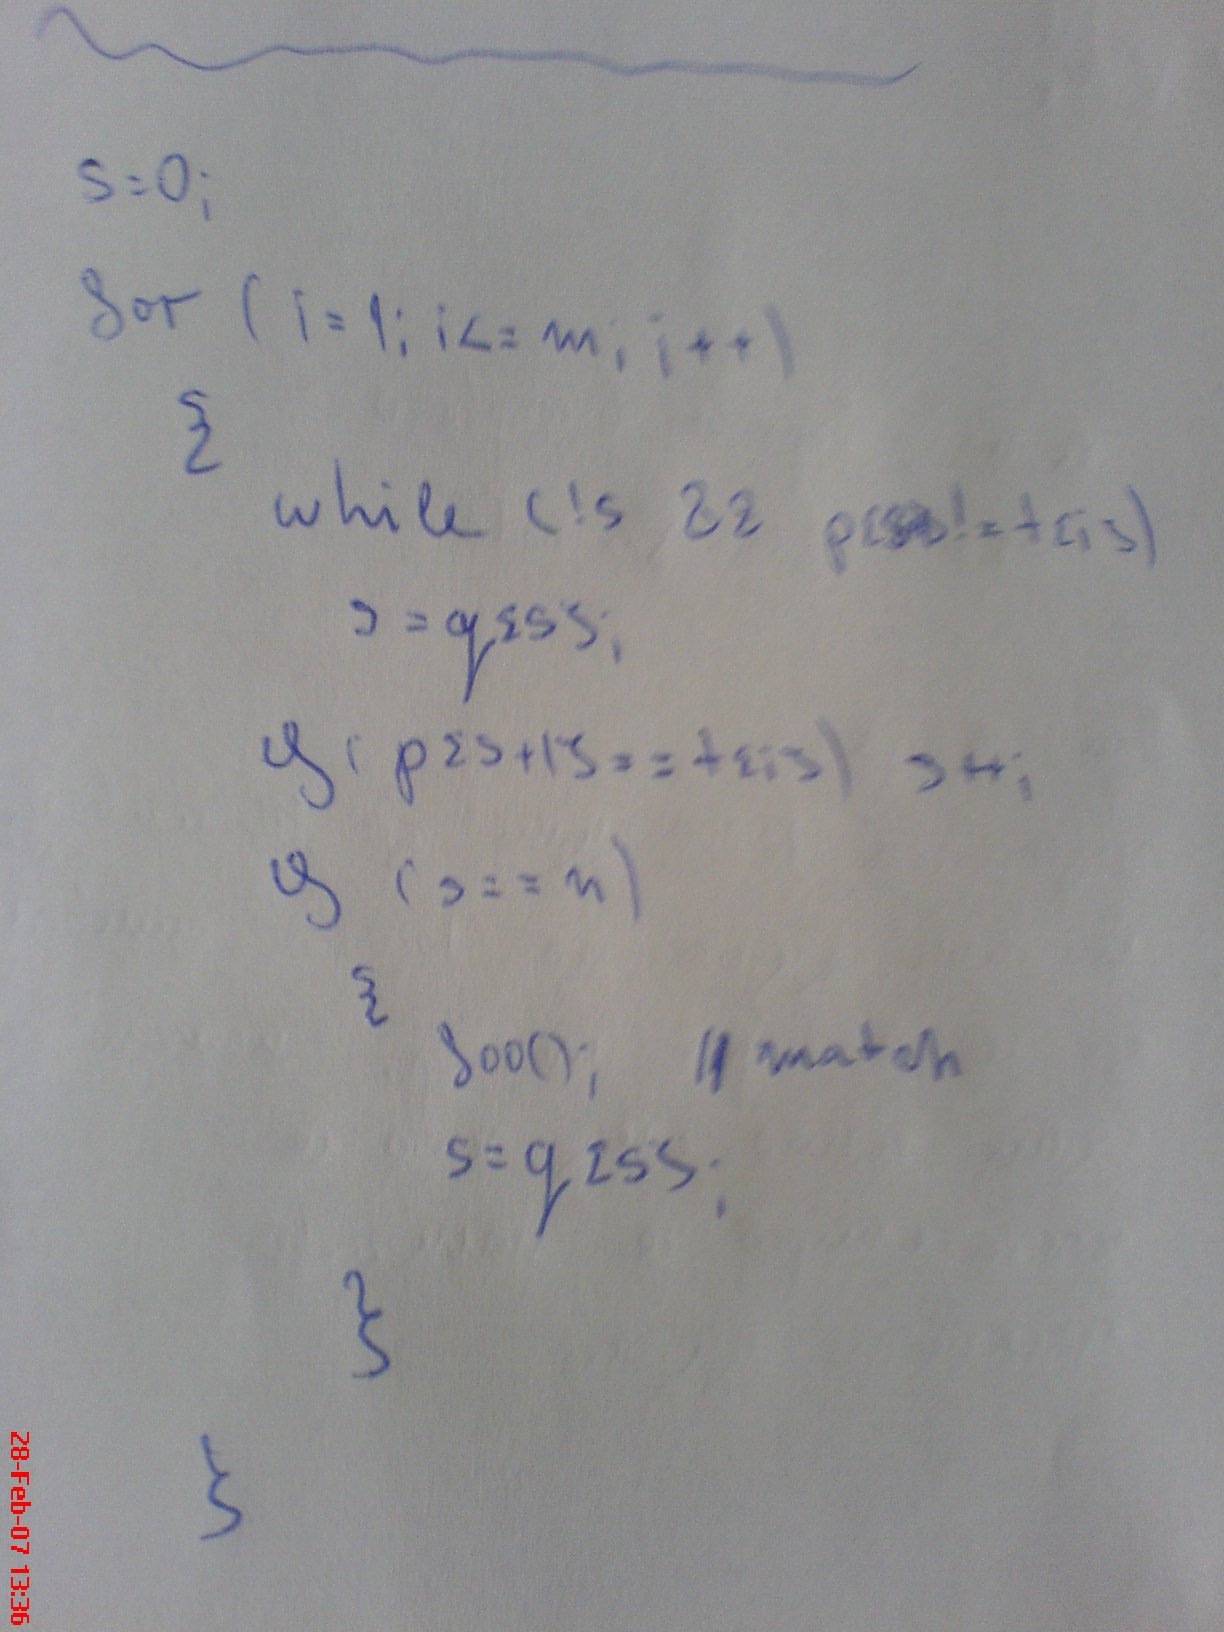 s=0;
for (i=1; i<=m; i++)
{
while (!s && p[s]!=t[i])
s=q[s];
if (p[s+1]==t[i]) s++;
if (s==n)
{
foo(); // match
s=q[s];
}
}
28-Feb-07 13:36